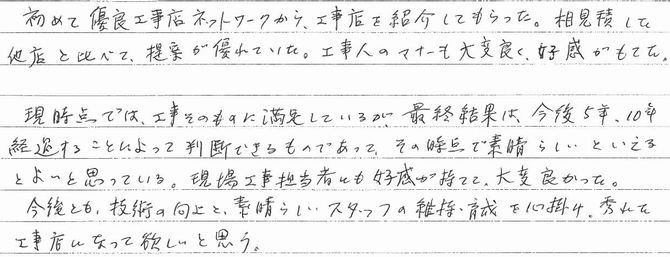 初めて優良工事店ネットワークから、工事店を紹介してもらった。相見積した
他店と比べて、提案が優れていた。工事人のマナーも大変良く、好感がもてた。
現時点では、工事そのものに満足しているが、最終結果は、今後5年、10年
経過することによって判断できるものであって、その時点で素晴らしいといえる
とよいと思っている。現場工事担当者にも好感が持てて、大変良かった。
今後とも、技術の向上と、素晴らしいスタッフの維持・育成を心掛け、秀れた
工事店になって欲しいと思う。